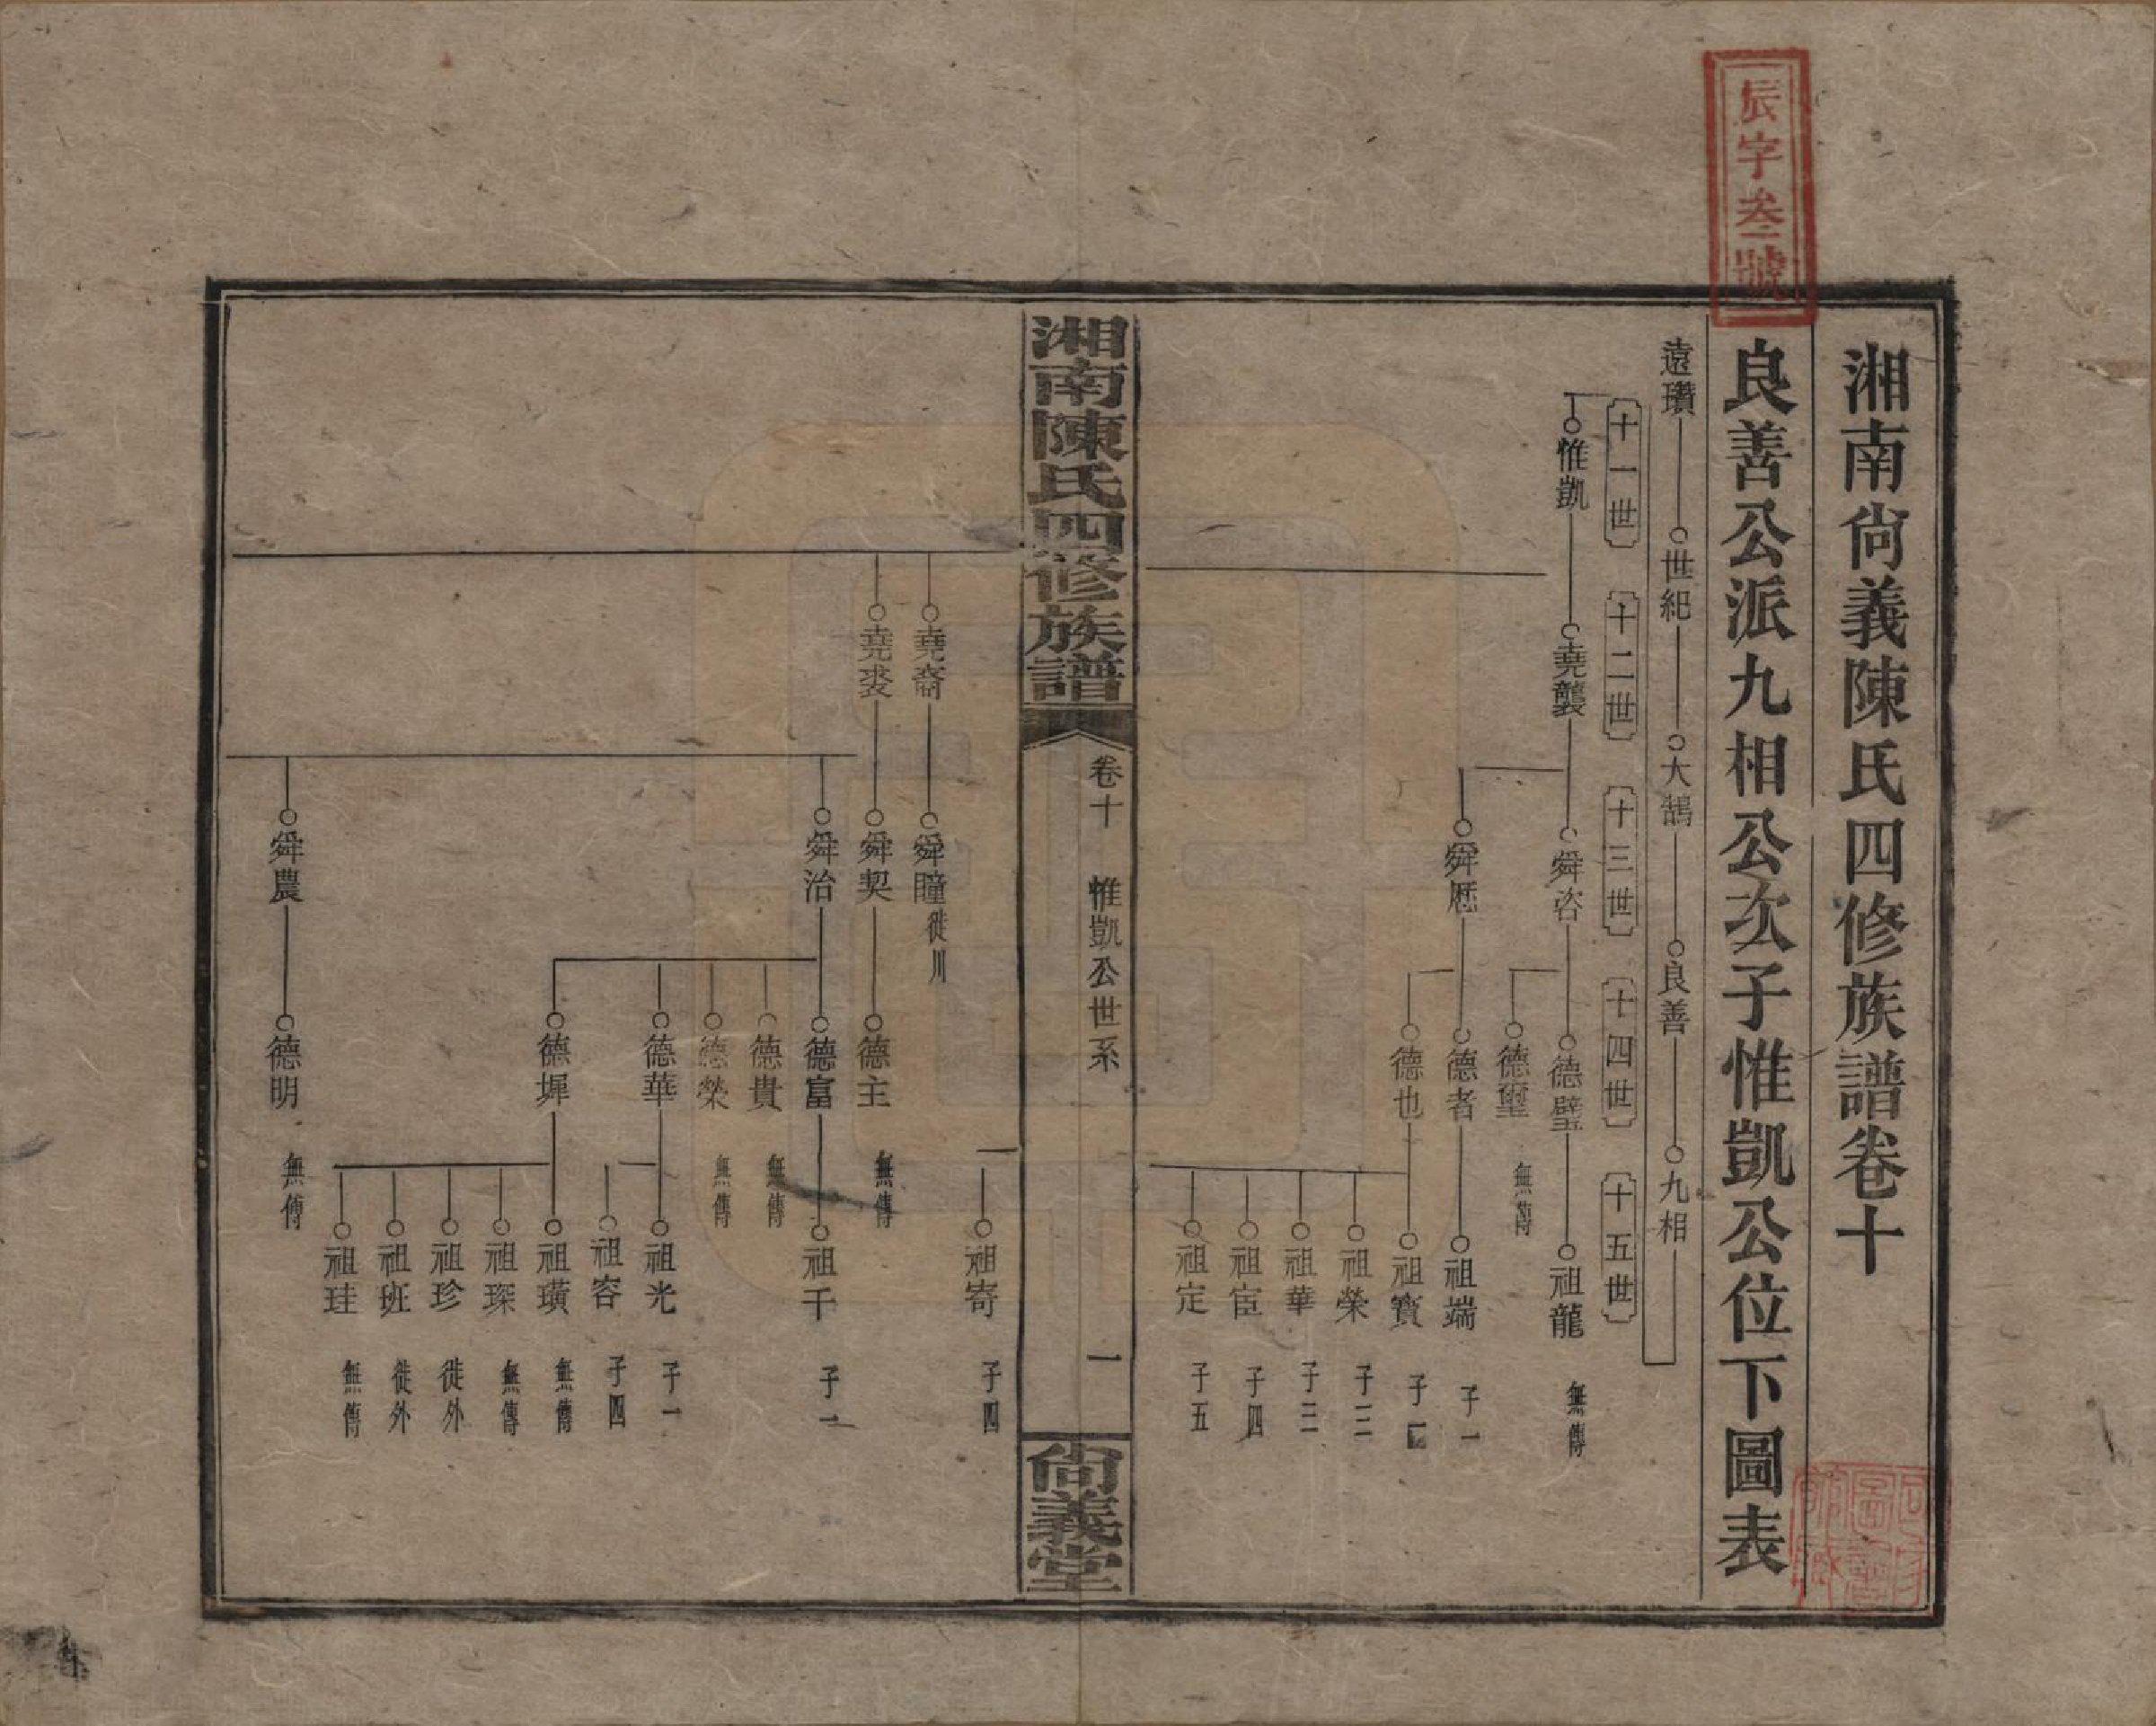 辰字叁號
湘南尙義陳氏四修族譜卷十
良善公派九相公次子惟凱公位下圖表
遠瓚 世紀 大鵠 良善 九相
十一世 十二世 十三世 十四世 十五世
惟凱 堯襲 舜咨 德璧 祖龍 無傳
德璽 無傳
舜歷 德者 祖端 子一
德也 祖寶
祖榮 子三
祖華 子三
祖宦 子四
祖定 子五
湘南陳氏四修族譜 卷十 惟凱公世系 一 尙義堂
祖寄 子四
堯裔 舜瞳 徙川
堯裘 舜契 德主 無傳
舜治 德富 祖千 子一
德貴 無傳
德榮 無傳
德華 祖光 子一
祖容 子四
德墀 祖璜 無傳
祖琛 無傳
祖珍 徙外
祖班 徙外
祖珪 無傳
舜農 德明 無傳